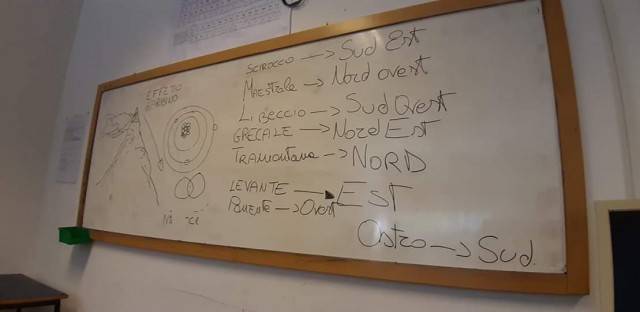 EFFETTO
SCIROCCO → Sud Est
MAESTRALE → Nord ovest
LIBECCIO → Sud Ovest
GRECALE → Nord EST
TRAMONTANA → NORD
LEVANTE → EST
PONENTE → Ovest
Ostro → Sud.